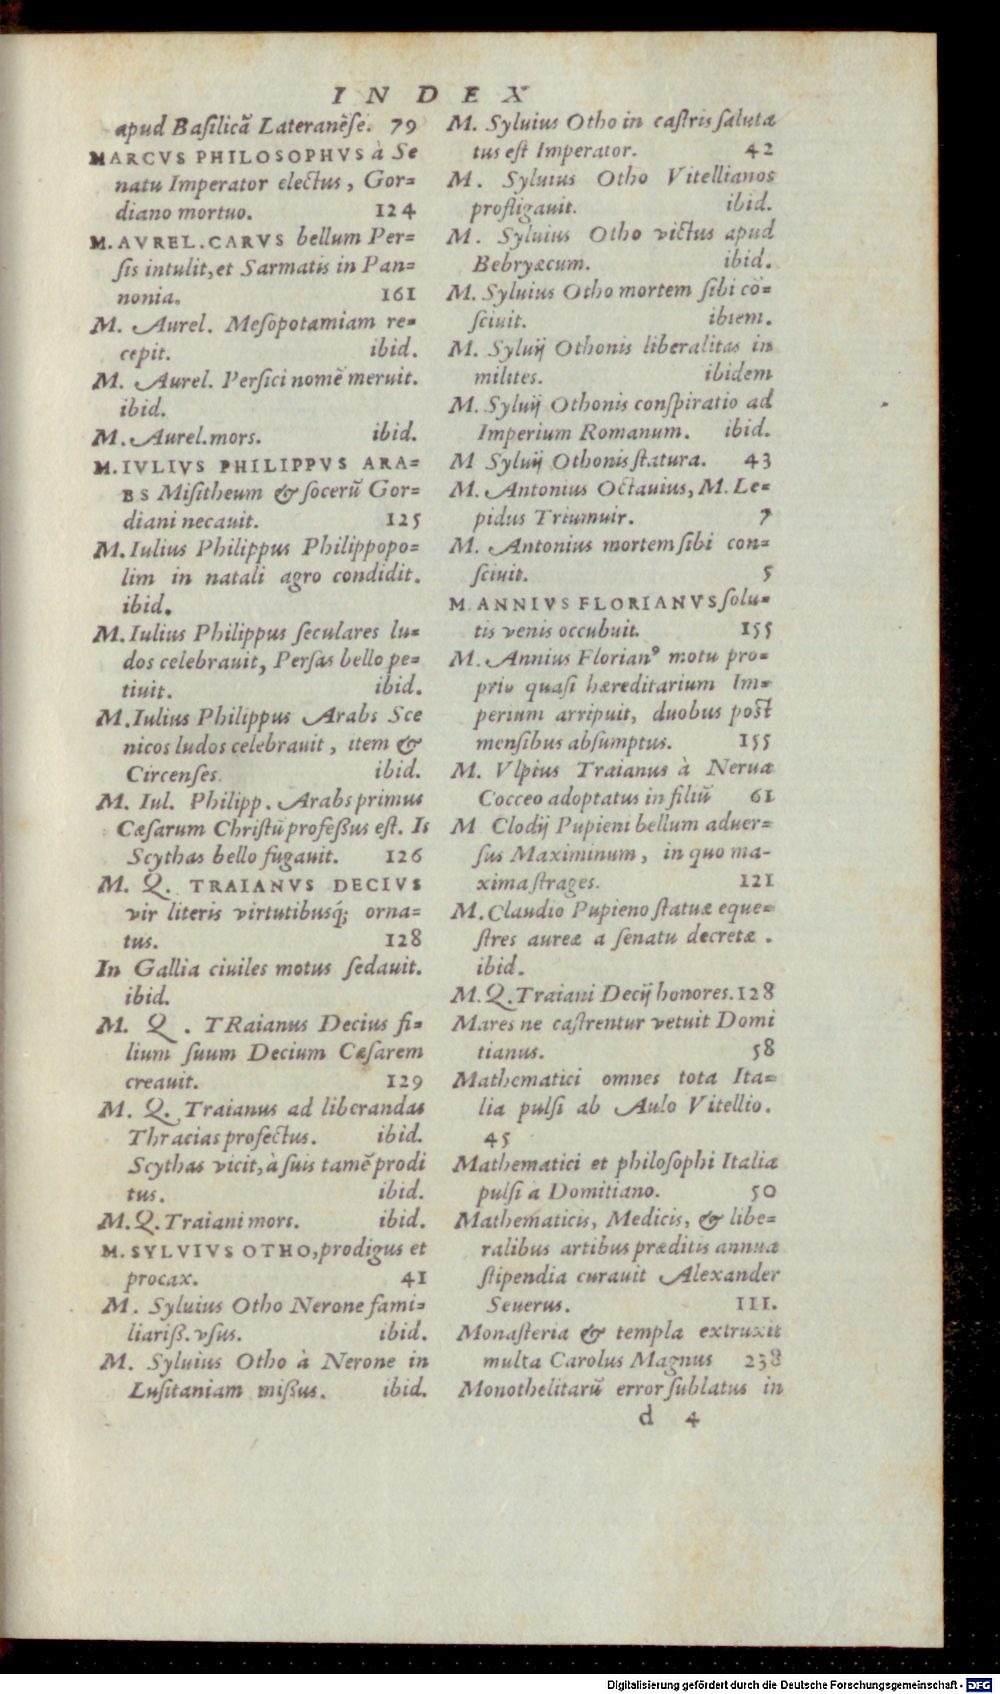 INDEX
apud Baſilicã Lateranēſe. 79
MARCVS PHILOSOPHVS à Se
natu Imperator electus, Gor=
diano mortuo. 124
M. AVREL. CARVS bellum Per=
ſis intulit, et Sarmatis in Pan=
nonia. 161
M. Aurel. Meſopotamiam re=
cepit. ibid.
M. Aurel. Perſici nomē meruit.
ibid.
M. Aurel. mors. ibid.
M. IVLIVS PHILIPPVS ARA=
BS Miſitheum & ſocerũ Gor=
diani necauit. 125
M. Iulius Philippus Philippopo=
lim in natali agro condidit.
ibid.
M. Iulius Philippus ſeculares lu=
dos celebrauit, Perſas bello pe=
tiuit. ibid.
M. Iulius Philippus Arabs Sce
nicos ludos celebrauit, item &
Circenſes. ibid.
M. Iul. Philipp. Arabs primus
Cæſarum Chriſtũ profeßus eſt. Is
Scythas bello fugauit. 126
M. Q. TRAIANVS DECIVS
vir literis virtutibusq́; orna=
tus. 128
In Gallia ciuiles motus ſedauit.
ibid.
M. Q. TRaianus Decius fi=
lium ſuum Decium Cæſarem
creauit. 129
M. Q. Traianus ad liberandas
Thracias profectus. ibid.
Scythas vicit, à ſuis tamē prodi
tus. ibid.
M. Q. Traiani mors. ibid.
M. SYLVIVS OTHO, prodigus et
procax. 41
M. Syluius Otho Nerone fami=
liariß. vſus. ibid.
M. Syluius Otho à Nerone in
Luſitaniam mißus. ibid.
M. Syluius Otho in caſtris ſalutæ
tus eſt Imperator. 42
M. Syluius Otho Vitellianos
profligauit. ibid.
M. Syluius Otho victus apud
Bebryæcum. ibid.
M. Syluius Otho mortem ſibi cō=
ſciuit. ibiem.
M. Syluij Othonis liberalitas in
milites. ibidem
M. Syluij Othonis conſpiratio ad
Imperium Romanum. ibid.
M Syluij Othonis ſtatura. 43
M. Antonius Octauius, M. Le=
pidus Triumuir. 7
M. Antonius mortem ſibi con=
ſciuit. 5
M. ANNIVS FLORIANVS ſolu=
tis venis occubuit. 155
M. Annius Florianꝰ motu pro=
prio quaſi hæreditarium Im=
perium arripuit, duobus poſt
menſibus abſumptus. 155
M. Vlpius Traianus à Neruæ
Cocceo adoptatus in filiũ 61
M Clodij Pupieni bellum aduer=
ſus Maximinum, in quo ma-
xima ſtrages. 121
M. Claudio Pupieno ſtatuæ eque=
ſtres aureæ a ſenatu decretæ.
ibid.
M. Q. Traiani Decij honores. 128
Mares ne caſtrentur vetuit Domi
tianus. 58
Mathematici omnes tota Ita=
lia pulſi ab Aulo Vitellio.
45
Mathematici et philoſophi Italiæ
pulſi a Domitiano. 50
Mathematicis, Medicis, & libe=
ralibus artibus præditis annuæ
ſtipendia curauit Alexander
Seuerus. 111.
Monaſteria & templa extruxit
multa Carolus Magnus 238
Monothelitarũ error ſublatus in
d 4
Digitalisierung gefördert durch die Deutsche Forschungsgemeinschaft - DFG